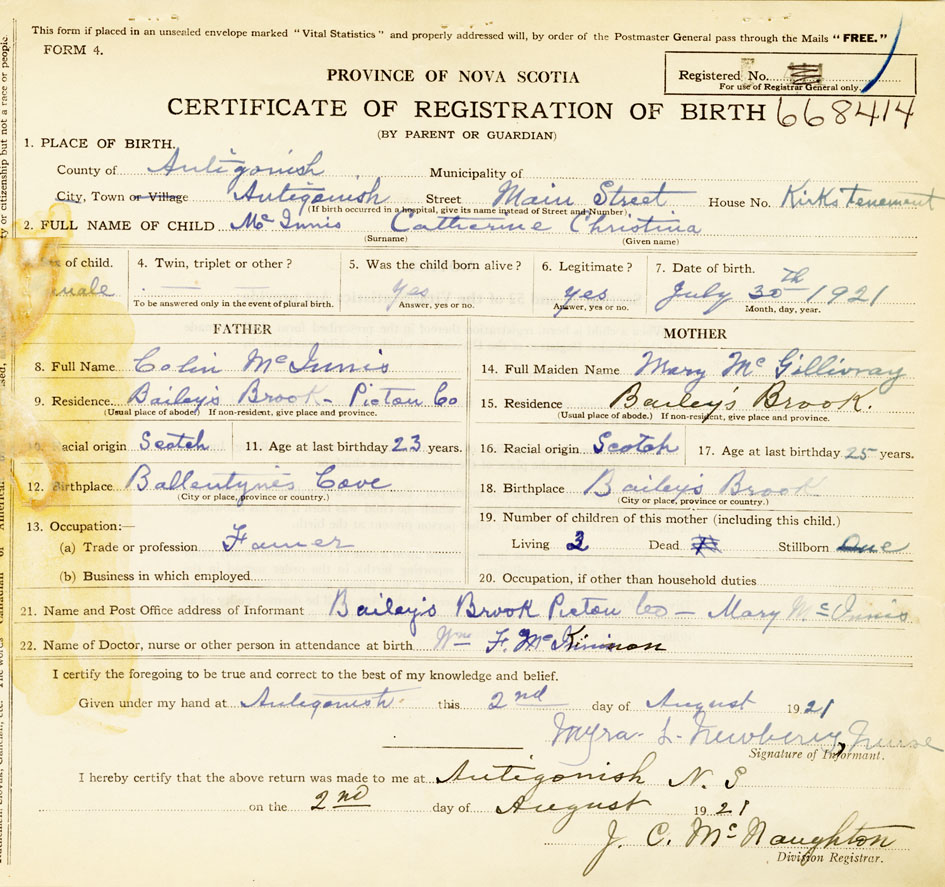 This form if placed in an unsealed envelope marked "Vital Statistics" and properly addressed will, by order of the Postmaster General pass through the Mails "FREE."
FORM 4.
PROVINCE OF NOVA SCOTIA
Registered No.
For use of Registrar General only.
CERTIFICATE OF REGISTRATION OF BIRTH 668414
(BY PARENT OR GUARDIAN)
1. PLACE OF BIRTH.
County of Antigonish Municipality of
City, Town or Village Antigonish Street Main Street House No. Kirks Tenement
(If birth occurred in a hospital, give its name instead of Street and Number)
2. FULL NAME OF CHILD McInnis Catherine Christina
(Surname) (Given name)
of child. 4. Twin, triplet or other? 5. Was the child born alive? 6. Legitimate? 7. Date of birth.
male — yes yes July 30th 1921
To be answered only in the event of plural birth. Answer, yes or no. Answer, yes or no. Month, day, year.
FATHER MOTHER
8. Full Name Colin McInnis 14. Full Maiden Name Mary McGillivray
9. Residence Bailey's Brook - Pictou Co 15. Residence Bailey's Brook.
(Usual place of abode) If non-resident, give place and province. (Usual place of abode.) If non-resident, give place and province.
Racial origin Scotch 11. Age at last birthday 23 years. 16. Racial origin Scotch 17. Age at last birthday 25 years.
12. Birthplace Ballentyne's Cove 18. Birthplace Bailey's Brook
(City or place, province or country.) (City or place, province or country.)
13. Occupation:— 19. Number of children of this mother (including this child.)
(a) Trade or profession Famer Living Dead Stillborn One
(b) Business in which employed 20. Occupation, if other than household duties
21. Name and Post Office address of Informant Bailey's Brook Pictou Co — Mary McInnis
22. Name of Doctor, nurse or other person in attendance at birth Wm F. McKinnon
I certify the foregoing to be true and correct to the best of my knowledge and belief.
Given under my hand at Antigonish this 2nd day of August 1921
Myra L. Newberry, Nurse
Signature of Informant.
I hereby certify that the above return was made to me at Antigonish N. S
on the 2nd day of August 1921
J. C. McNaughton
Division Registrar.